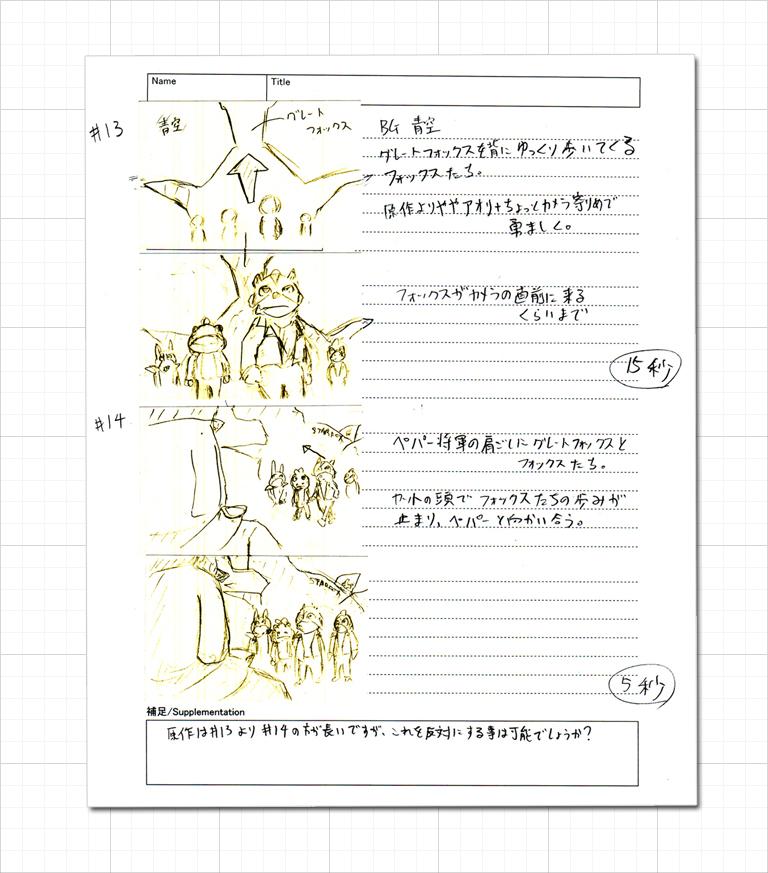 Name
Title
#13
青空
グレート
フォックス
BG 青空
グレートフォックスを背に ゆっくり歩いてくる
フォックスたち。
原作よりややアオリ+ちょっとカメラ寄りめで
勇ましく。
フォックスがカメラの直前に来る
くらいまで
15秒
#14
ペパー将軍の肩ごしに グレートフォックスと
フォックスたち。
カットの頭で フォックスたちの歩みが
止まり、ペパーと向かい合う。
5秒
補足/Supplementation
原作は#13より #14の方が長いですが、これを反対にする事は可能でしょうか?